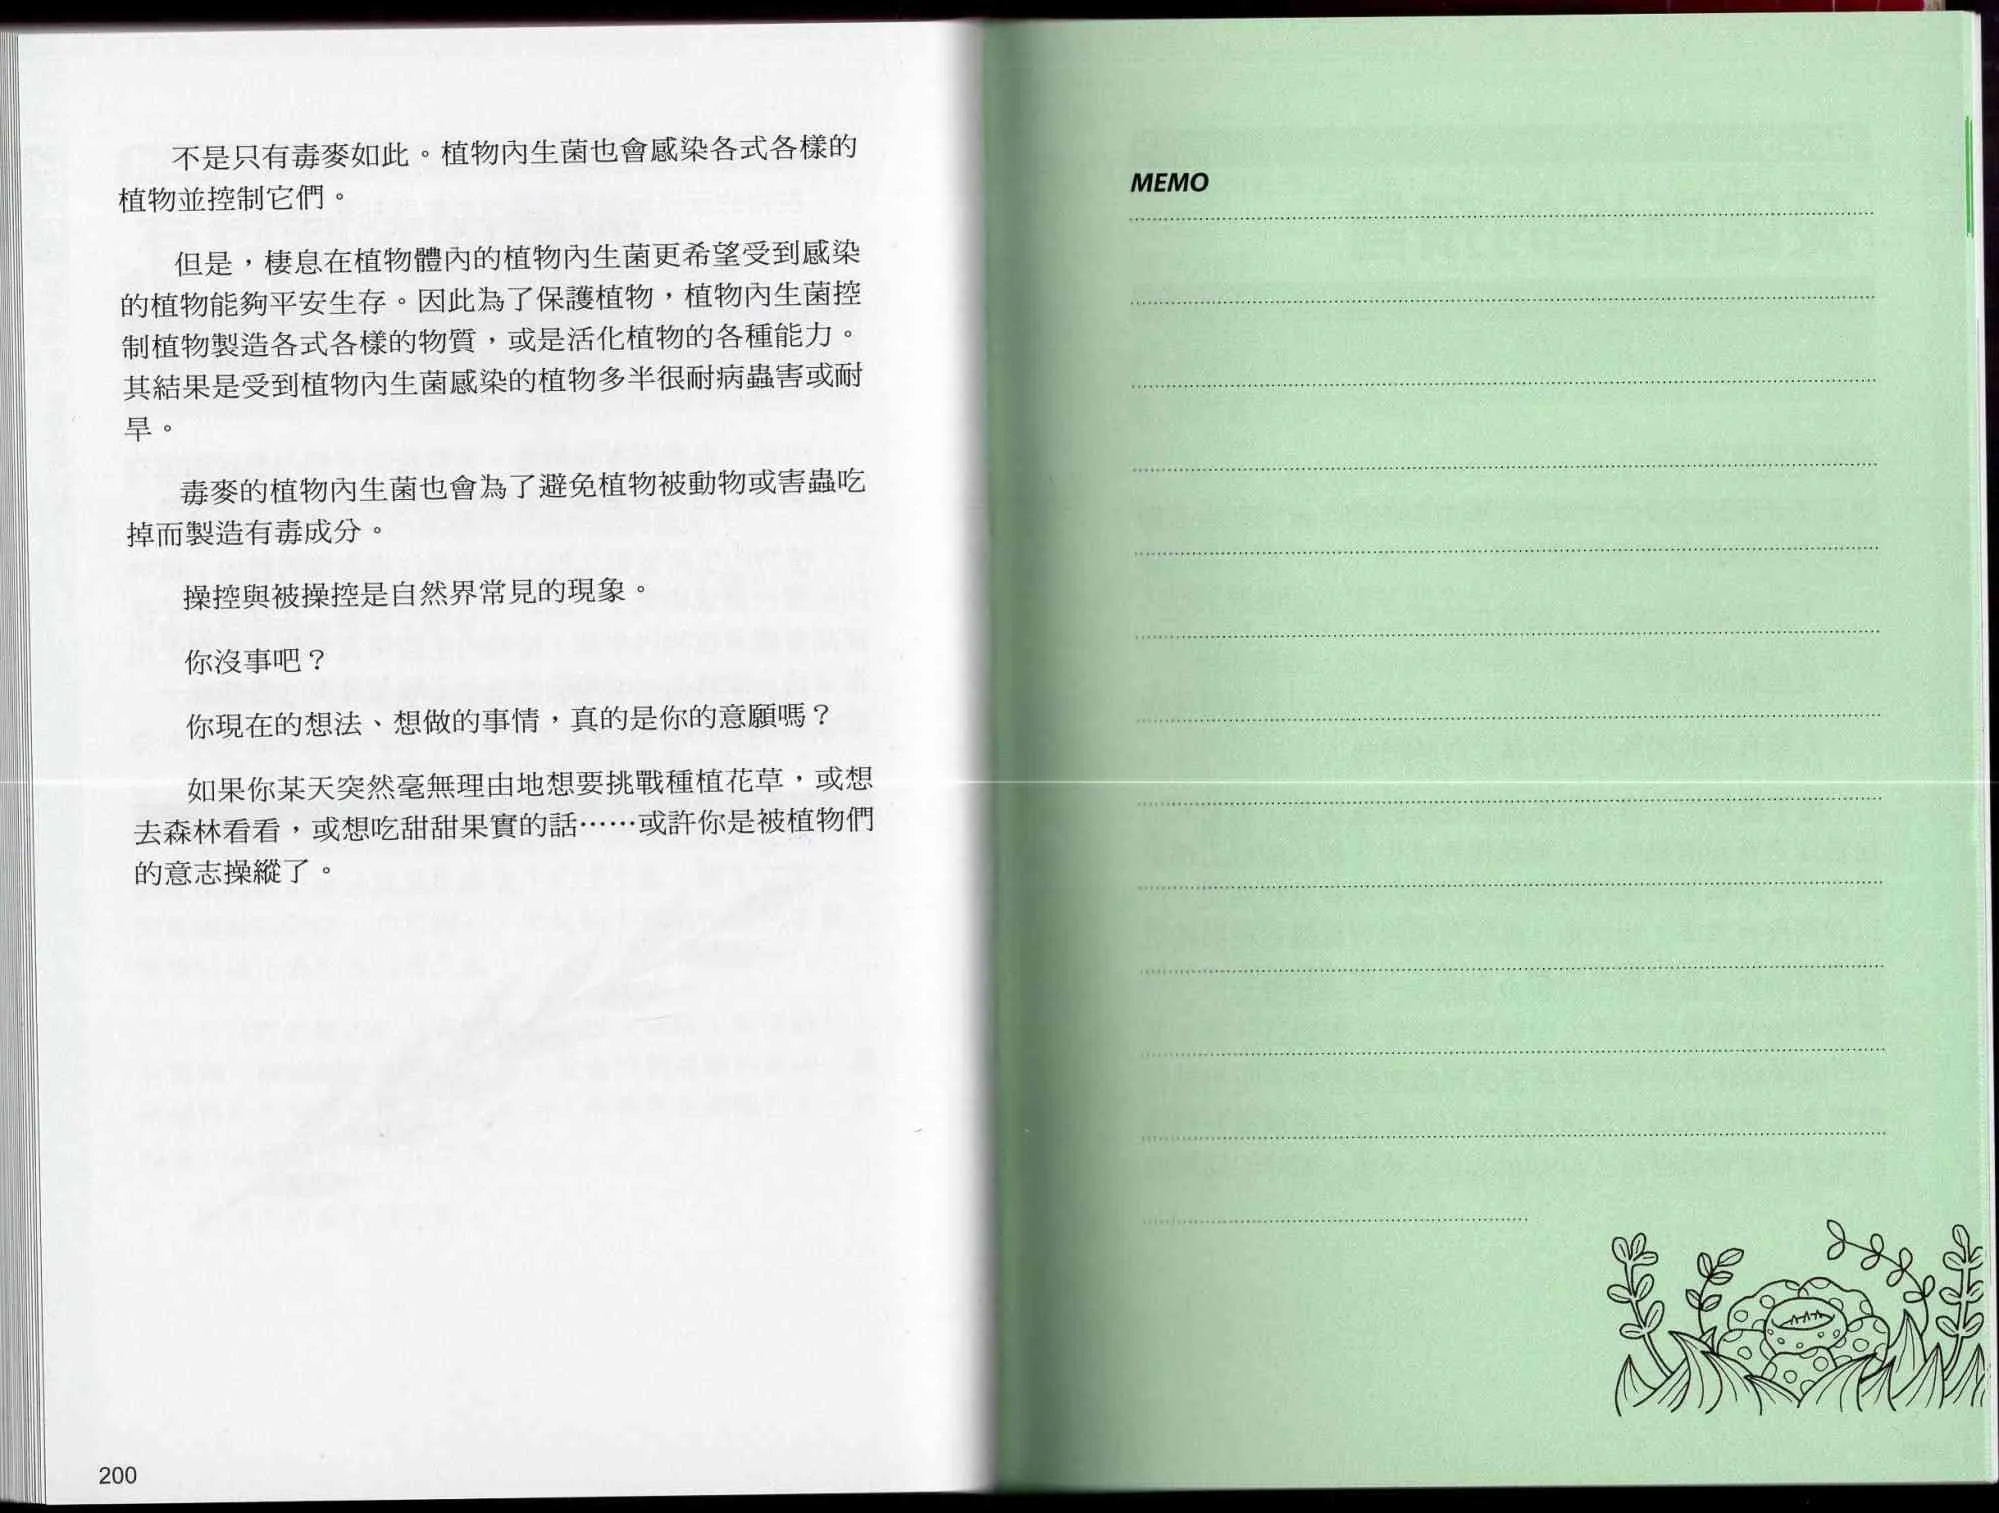 不是只有毒麥如此。植物內生菌也會感染各式各樣的
植物並控制它們。
但是，棲息在植物體內的植物內生菌更希望受到感染
的植物能夠平安生存。因此為了保護植物，植物內生菌控
制植物製造各式各樣的物質，或是活化植物的各種能力。
其結果是受到植物內生菌感染的植物多半很耐病蟲害或耐
旱。
毒麥的植物內生菌也會為了避免植物被動物或害蟲吃
掉而製造有毒成分。
操控與被操控是自然界常見的現象。
你沒事吧？
你現在的想法、想做的事情，真的是你的意願嗎？
如果你某天突然毫無理由地想要挑戰種植花草，或想
去森林看看，或想吃甜甜果實的話……或許你是被植物們
的意志操縱了。
200
MEMO